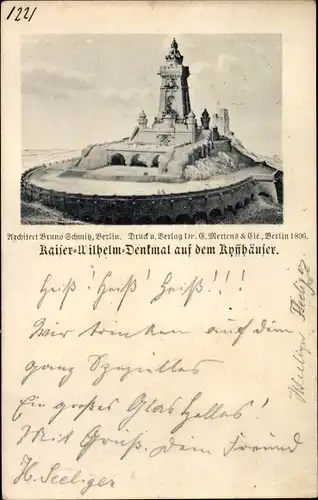 1221
Architect Bruno Schmitz, Berlin. Druck u. Verlag Dr. E. Mertens & Cie., Berlin 1896.
Kaiser-Wilhelm-Denkmal auf dem Kyffhäuser.
Heiß! Heiß! Heiß!!!
Wir trinken auf dem
ganz Spezielles
Ein großes Glas Helles!
Mit Gruß, Dein Freund
H. Seeliger